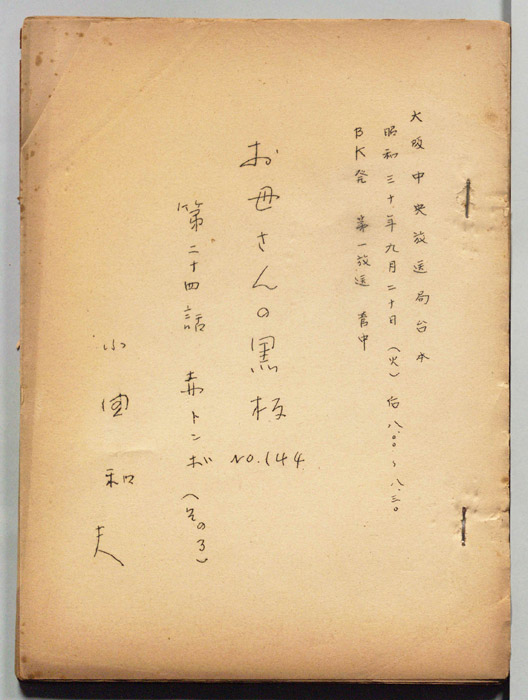 大阪中央放送局台本
昭和三十年九月二十日（火）后八.〇〇〜八.三〇
BK発 第一放送 管中
お母さんの黒板 NO.144
第二十四話 赤トンボ（その3）
小国和夫